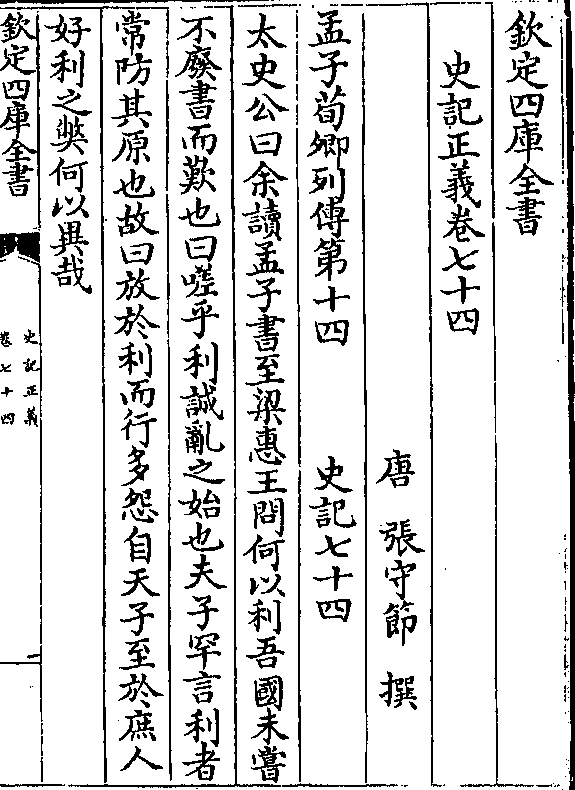 欽定四庫全書
史記正義卷七十四
唐 張守節 撰
孟子荀卿列傳第十四 史記七十四
太史公曰余讀孟子書至梁惠王問何以利吾國未嘗
不廢書而歎也曰嗟乎利誠亂之始也夫子罕言利者
常防其原也故曰放於利而行多怨自天子至於庶人
好利之獘何以異哉
欽定四庫全書
史記正義
卷七十四